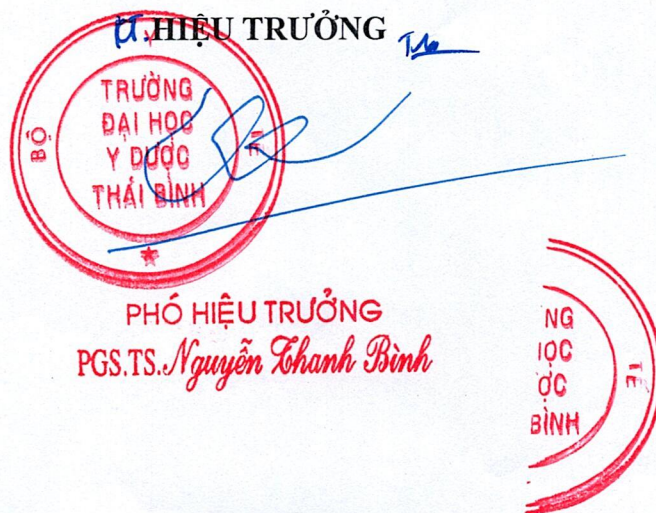 KT. HIỆU TRƯỞNG
BỘ Y TẾ
TRƯỜNG
ĐẠI HỌC
Y DƯỢC
THÁI BÌNH
PHÓ HIỆU TRƯỞNG
PGS.TS. Nguyễn Thanh Bình
NG
HỌC
ỢC
BÌNH
TẾ